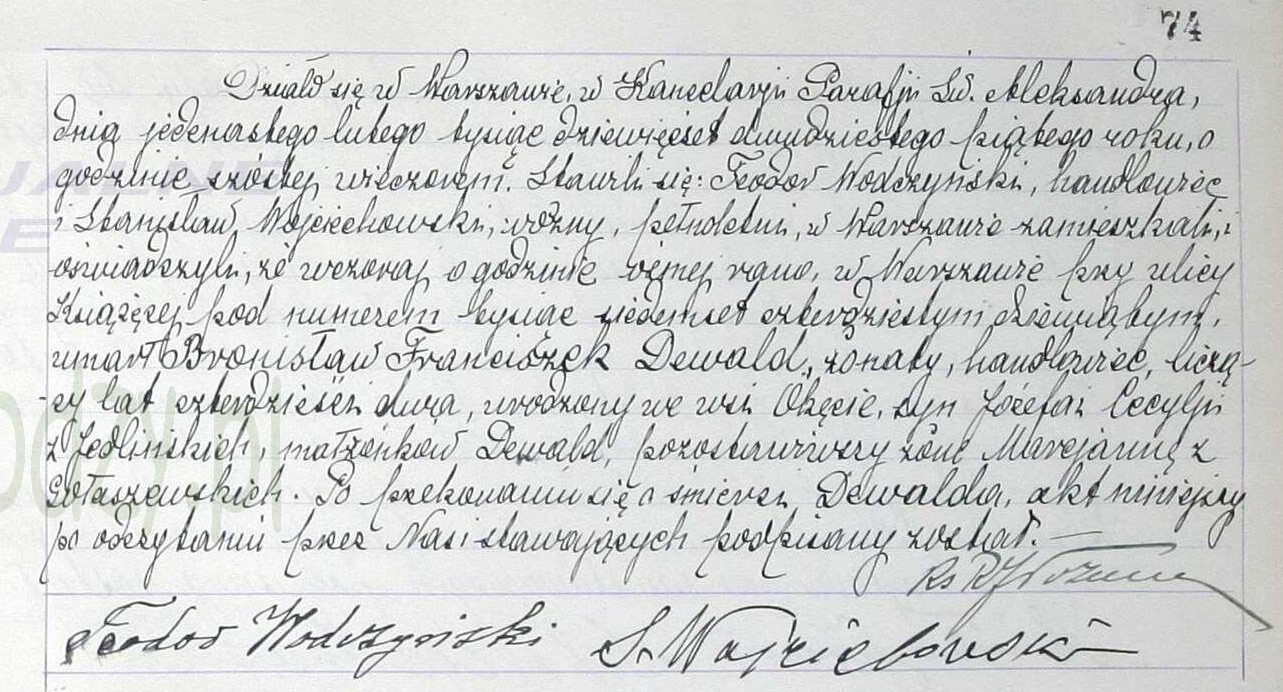 74
Działo się w Warszawie, w Kancelarji Parafji Św. Aleksandra,
dnia jedenastego lutego tysiąc dziewięćset dwudziestego piątego roku, o
godzinie szóstej wieczorem. Stawili się: Teodor Wodczyński, handlowiec
i Stanisław Wojciechowski, woźny, pełnoletni, w Warszawie zamieszkali, i
oświadczyli, że wczoraj o godzinie ósmej rano, w Warszawie przy ulicy
Książęcej pod numerem tysiąc siedemset czterdziestym dziewiątym,
umarł Bronisław Franciszek Dewald, żonaty, handlowiec, liczą-
cy lat czterdzieści dwa, urodzony we wsi Okęcie, syn Józefa i Cecylji
z Jedlińskich, małżonków Dewald, pozostawiwszy żonę Marcjannę z
Gołaszewskich. Po przekonaniu się o śmierci Dewalda, akt niniejszy
po odczytaniu przez Nas i stawających podpisany został. —
Ks
Teodor Wodczyński S. Wojciechowski